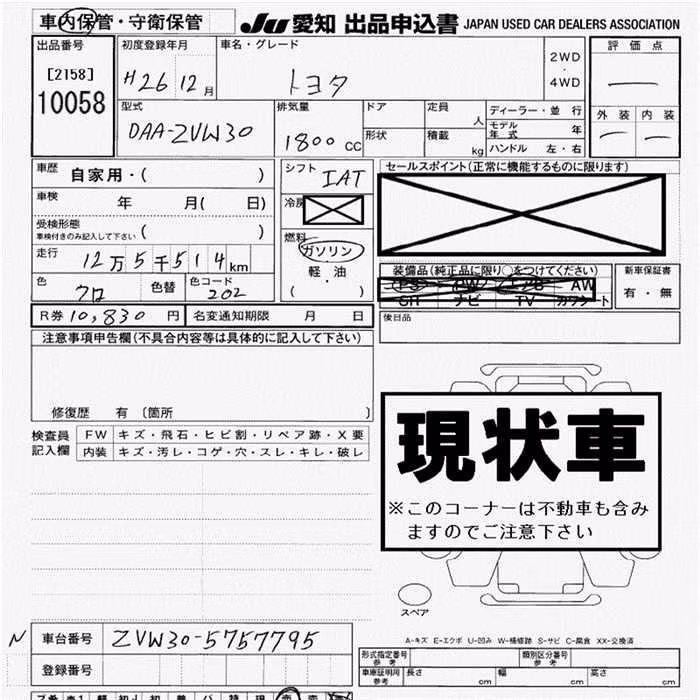 車内保管・守衛保管 JU 愛知 出品申込書 JAPAN USED CAR DEALERS ASSOCIATION
出品番号 初度登録年月 車名・グレード 2WD・4WD 評価点
[2158] H26 12月 トヨタ
10058
型式 排気量 ドア 定員 人 ディーラー・並 行 外装 内装
DAA-ZVW30 1800 CC 形状 積載 kg モデル年式 年
ハンドル 左・右
車歴 自家用・( ) シフト IAT セールスポイント(正常に機能するものに限ります)
車検 年 月( 日) 冷房
受検形態 ( )
車検付きのみ記入して下さい
燃料 ガソリン
走行 12万5千514km 軽・油
( )
装備品(純正品に限り○をつけてください) 新車保証書
PS PW エアB AW 有・無
SR ナビ TV カワシート
色 クロ 色替 色コード 202
R券 10,830 円 名変通知期限 月 日 後日品
注意事項申告欄(不具合内容等は具体的に記入して下さい)
修復歴 有 〔箇所 〕
検査員 FW キズ・飛石・ヒビ割・リペア跡・X要
記入欄 内装 キズ・汚レ・コゲ・穴・スレ・キレ・破レ
現状車
※このコーナーは不動車も含み
ますのでご注意下さい
スペア
A-キズ E-エクボ U-凹み W-補修跡 S-サビ C-腐食 XX-交換済
N 車台番号 ZVW30-5757795
登録番号
形式指定番号 参考 類別区分番号 参考
車庫証明用 参考 長さ cm 幅 cm 高さ cm